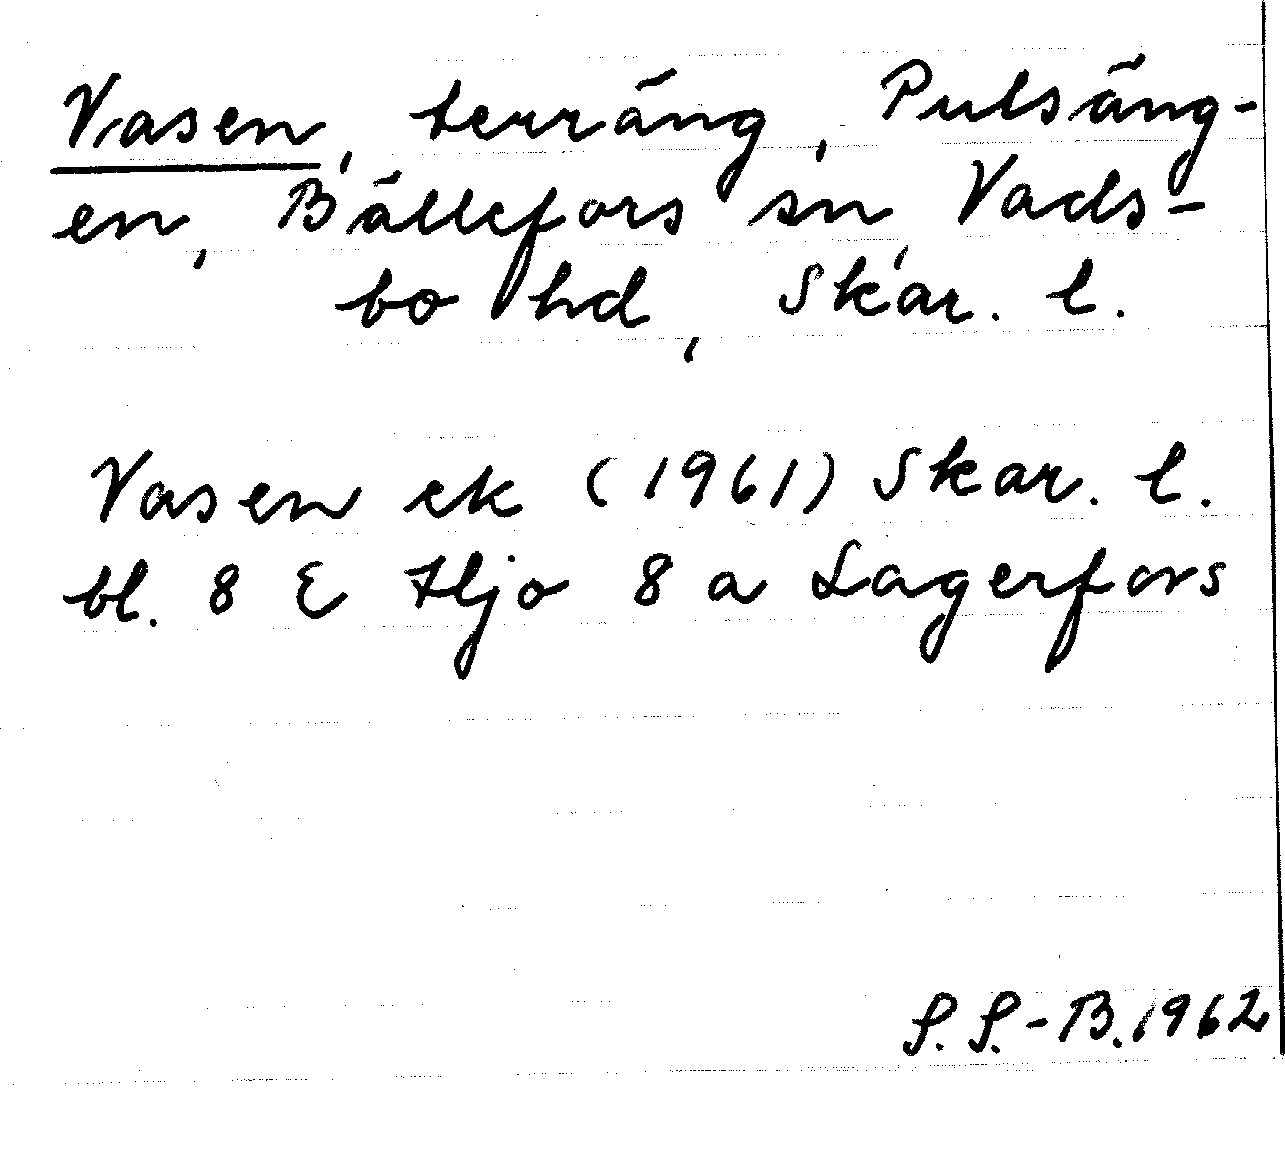 Vasen, terräng, Pulsäng-
en, Bällefors sn, Vads-
bo hd, Skar. l.
Vasen ek (1961) Skar. l.
bl. 8 E Hjo 8 a Lagerfors
S. S.-B. 1962